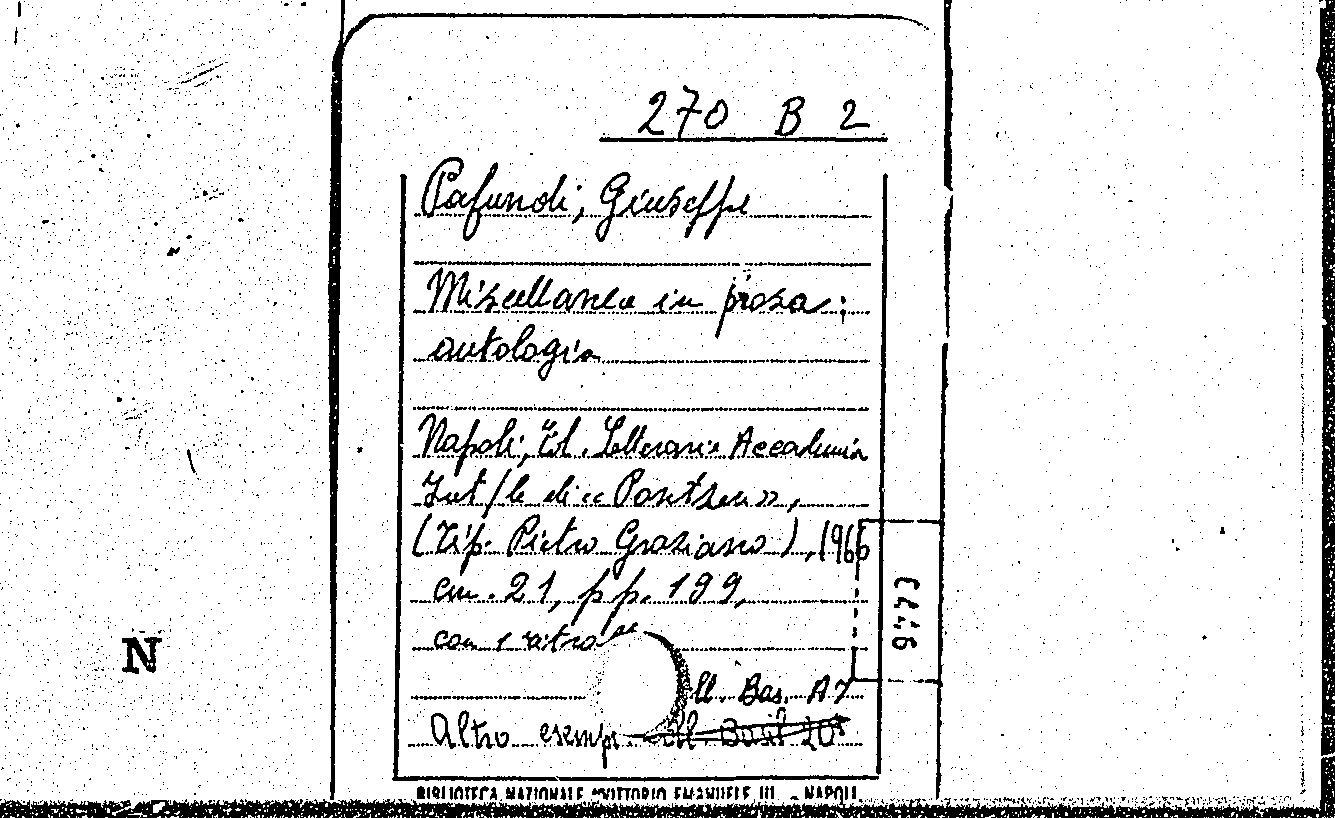 270 B 2
Pafundi, Giuseppe
Miscellanea in prosa;
antologia
Napoli, Ed. Letteraria Accademia
Int/le di « Pontzen »,
(Tip. Pietro Graziano), 1966
cm. 21, pp. 199,
con ritro
Bas. A7
Altro esemp.
N
BIBLIOTECA NAZIONALE "VITTORIO EMANUELE III" - NAPOLI